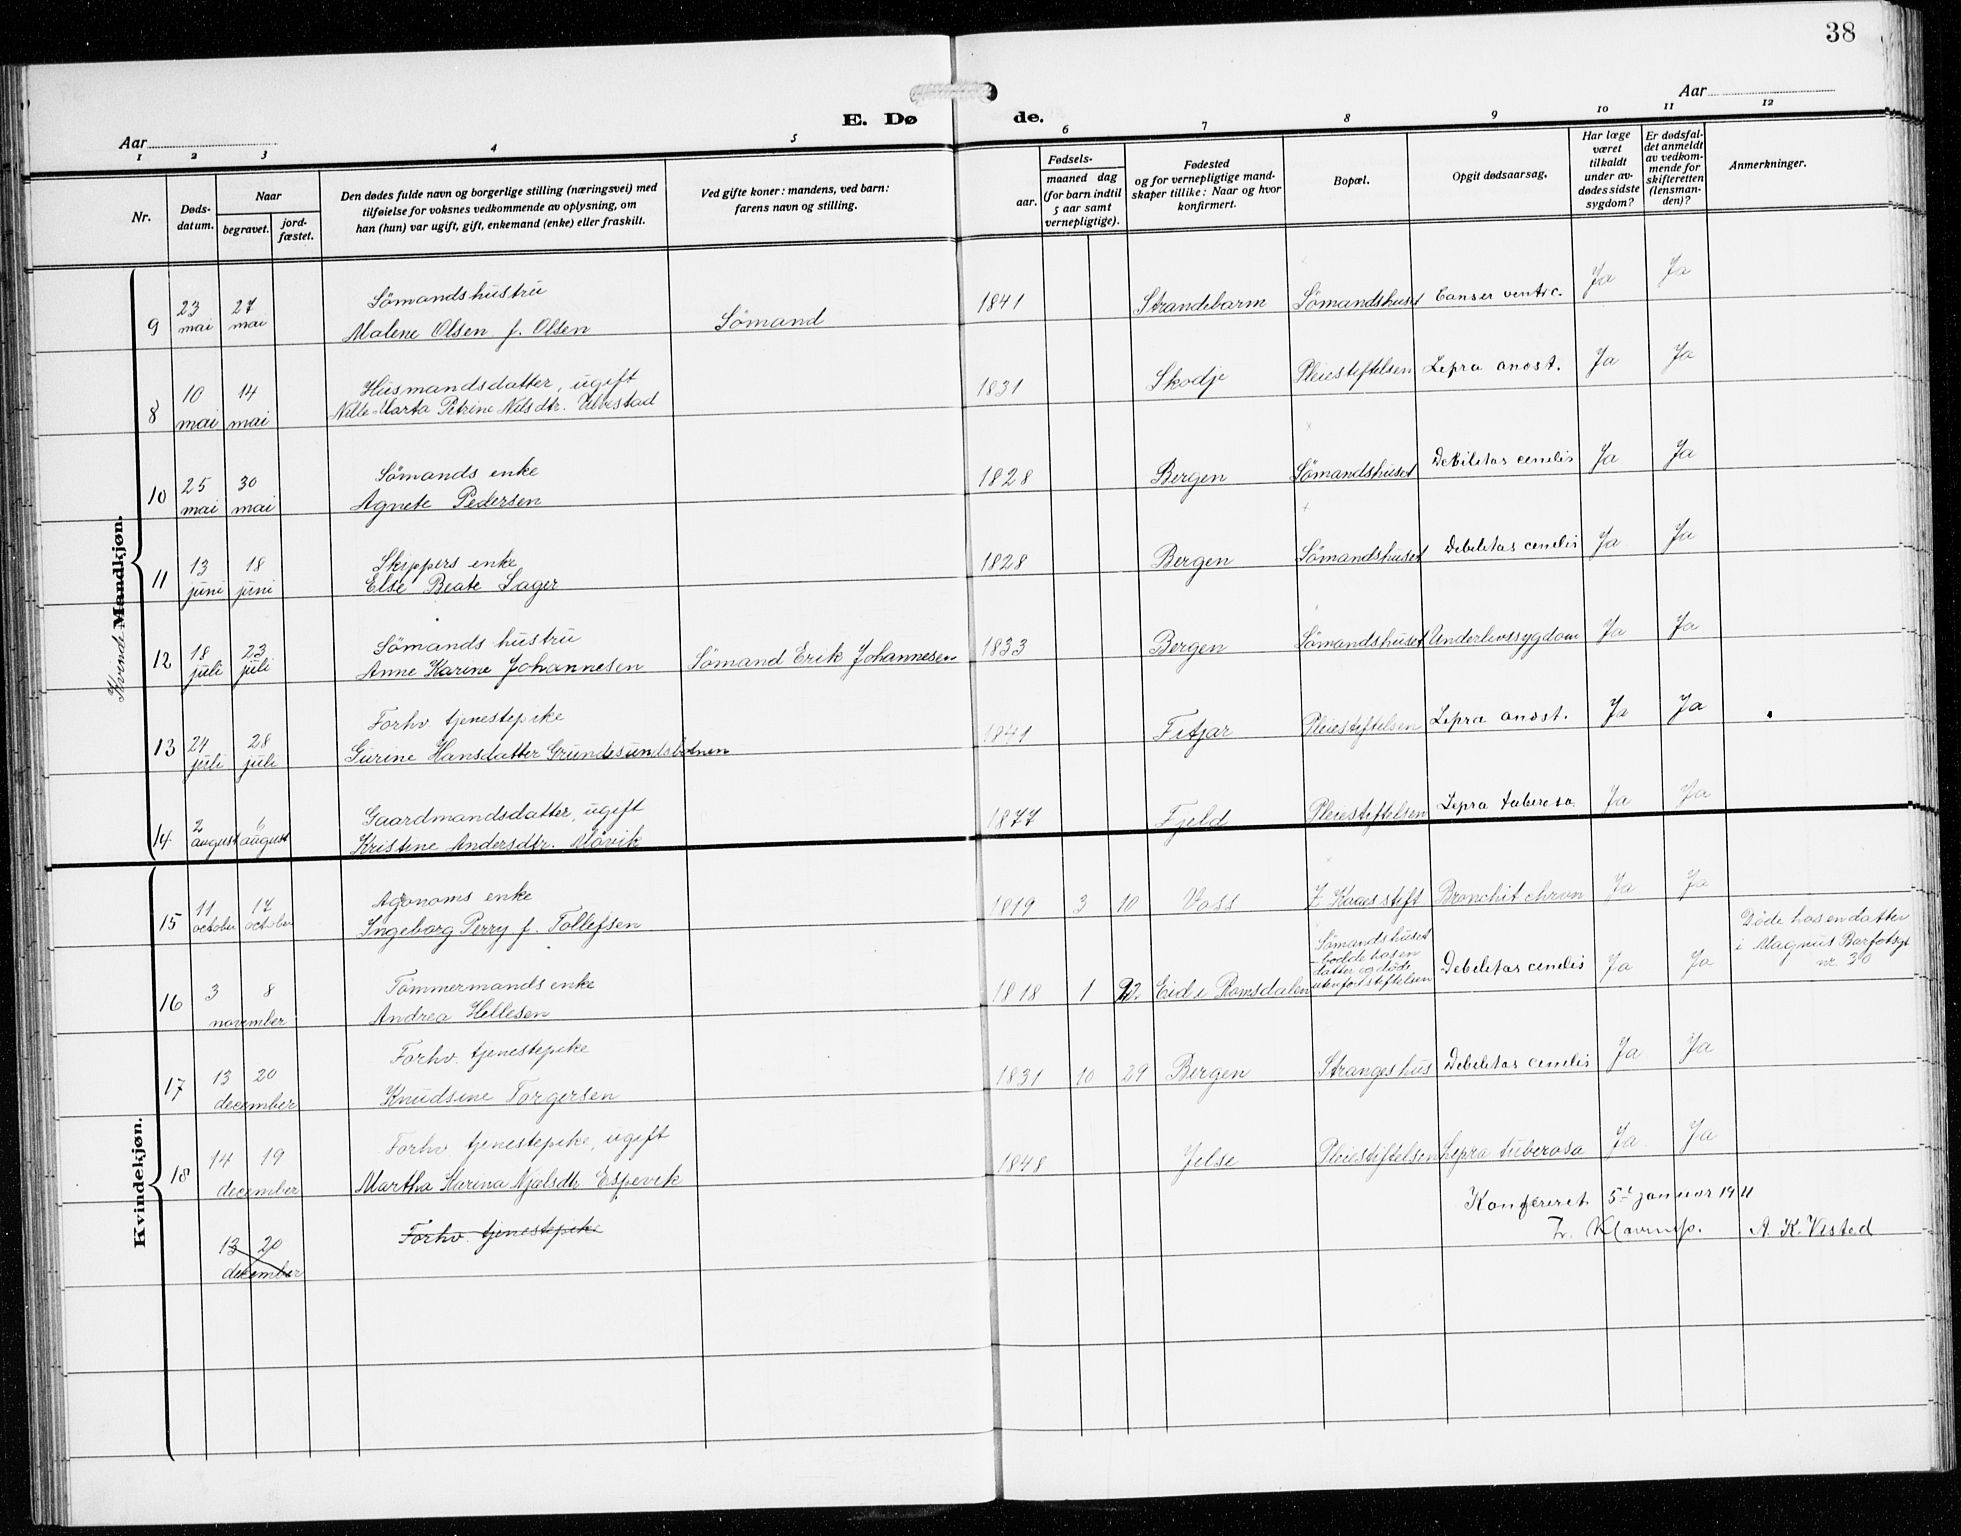 38
E. Døde.
Aar
Aar
1 2 3 4 5 6 7 8 9 10 11 12
Nr.
Døds-
datum.
Naar
begravet.
jord-
fæstet.
Den dødes fulde navn og borgerlige stilling (næringsvei) med
tilføielse for voksnes vedkommende av oplysning, om
han (hun) var ugift, gift, enkemand (enke) eller fraskilt.
Ved gifte koner: mandens, ved barn:
farens navn og stilling.
Fødsels-
aar.
maaned dag
(for barn indtil
5 aar samt
vernepligtige).
Fødested
og for vernepligtige mand-
skaper tillike: Naar og hvor
konfirmert.
Bopæl.
Opgit dødsaarsag.
Har læge
været
tilkaldt
under av-
dødes sidste
sygdom?
Er dødsfal-
det anmeldt
av vedkom-
mende for
skifteretten
(lensman-
den)?
Anmerkninger.
Kvinde Mandkjøn.
9 23 mai 27 mai
Sömandshustru
Malene Olsen f. Olsen
Sömand
1841 Strandebarm Sömandshuset Canser ventrc. Ja Ja
8 10 mai 14 mai
Husmandsdatter, ugift
Nille Marta Petrine Nilsdtr. Ulvestad
1831 Skodje Pleiestiftelsen Lepra anæst. Ja Ja
10 25 mai 30 mai
Sömands enke
Agnete Pedersen
1828 Bergen Sömandshuset Debilitas cenelis Ja Ja
11 13 juni 18 juni
Skippers enke
Else Beate Lager
1828 Bergen Sömandshuset Debilitas cenelis Ja Ja
12 18 juli 23 juli
Sömands hustru
Anne Karine Johannesen
Sömand Erik Johannesen
1833 Bergen Sömandshuset Underlivssygdom Ja Ja
13 24 juli 28 juli
Forhv tjenestepike
Gurine Hansdatter Grundesundsbotnen
1841 Fitjar Pleiestiftelsen Lepra anæst. Ja Ja
14 2 august 6 august
Gaardmandsdatter, ugift
Kristine Andersdtr. Måvik
1877 Fjeld Pleiestiftelsen Lepra tuberosa Ja Ja
Kvindekjøn.
15 11 october 17 october
Agonoms enke
Ingeborg Perry f. Tollefsen
1819 3 10 Voss Z. Kaaes stift Bronchit chron Ja Ja
16 3 8 november
Tömmermands enke
Andrea Hellesen
1818 1 22 Eid i Romsdalen
Sömandshuset
- bodde hos en
datter og døde
utenfor stiftelsen
Debilitas cenelis Ja Ja
Døde hos en datter
i Magnus Barfotsgt
nr. 30
17 13 20 december
Forhv. tjenestepike
Knudsine Torgersen
1831 10 29 Bergen Stranges hus Debilitas cenelis Ja Ja
18 14 19 december
Forhv. tjenestepike, ugift
Martha Karina Njælsdtr Espevik
1848 Jelse Pleiestiftelsen Lepra tuberosa Ja Ja
13 20 december
Forhv. tjenestepike
Konfereret 5t januar 1911
A. K. Visted